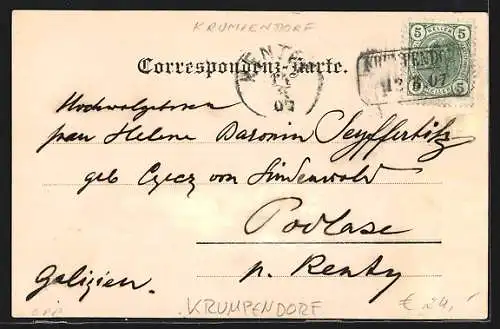 KRUMPENDORF
5 HELLER 5
KRUMPENDORF
5 12 8 07 5
KENTY
07
Correspondenz-Karte.
Hochwolgeboren
frau Helene Baronin Seyffertitz
geb Czecz von Lindenwald
Podlase
Galizien. p. Kenty
KRUMPENDORF € 24,-